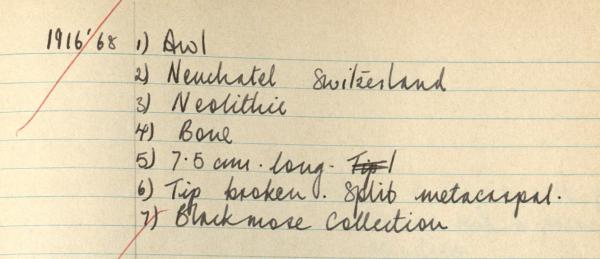 1916'68 1) Awl
2) Neuchatel Switzerland
3) Neolithic
4) Bone
5) 7.5 cm. long.
6) Tip broken. Split metacarpal.
7) Blackmore Collection